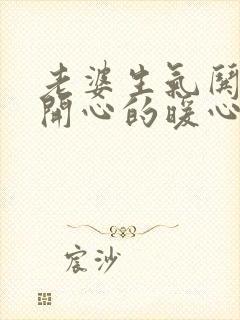 老婆生氣關
開心的暖心
宸沙